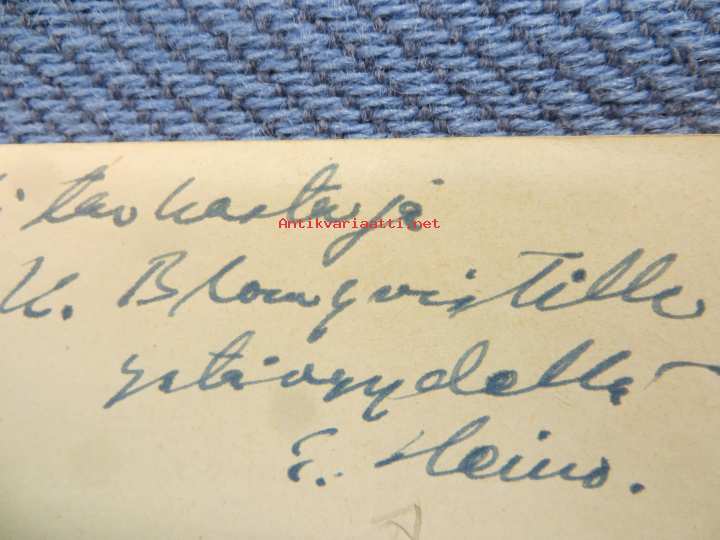 tarkastaja
Antikvariaatti.net
K. Blomqvistille
ystävyydellä
E. Heino.